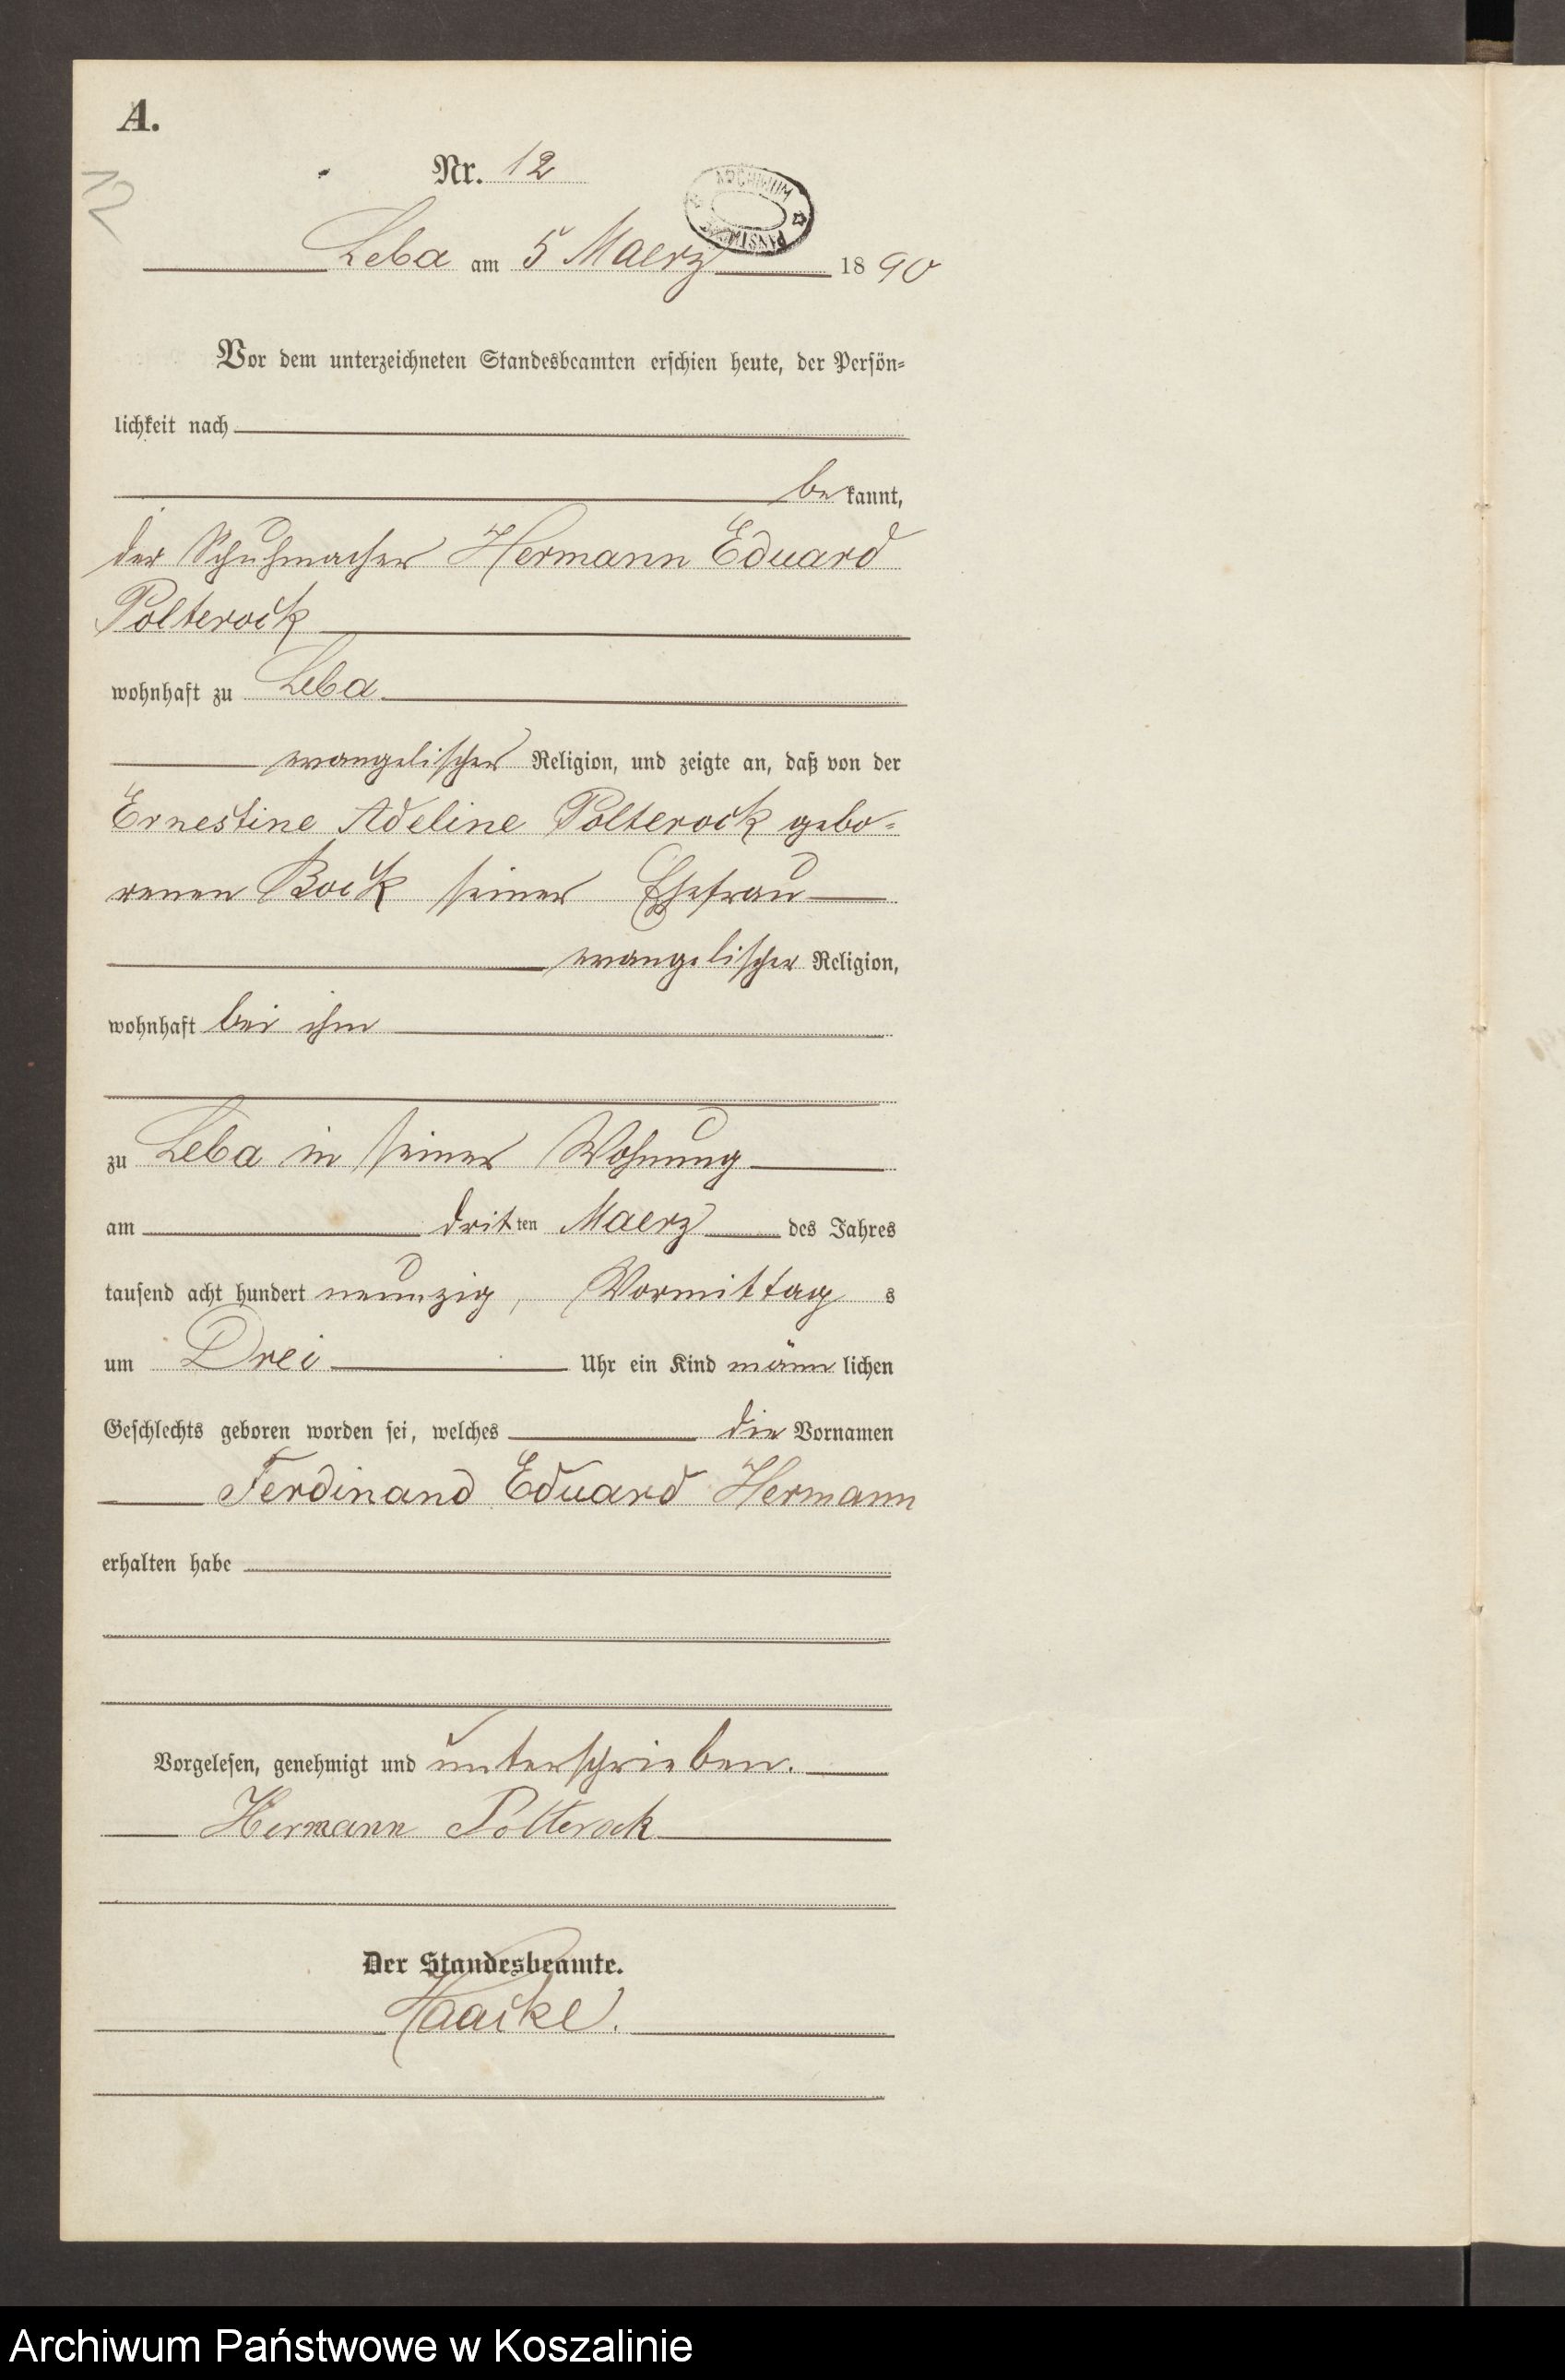 A.
12
Nr. 12
ARCHIWUM
Leba am 5 Maerz 1890
Vor dem unterzeichneten Standesbeamten erschien heute, der Persön=
lichkeit nach
bekannt,
der Schuhmacher Hermann Eduard
Polterock
wohnhaft zu Leba
evangelischer Religion, und zeigte an, daß von der
Ernestine Adeline Polterock gebo=
renen Bock seiner Ehefrau
evangelischer Religion,
wohnhaft bei ihm
zu Leba in seiner Wohnung
am dritten Maerz des Jahres
tausend acht hundert neunzig, Vormittags
um Drei Uhr ein Kind männlichen
Geschlechts geboren worden sei, welches die Vornamen
Ferdinand Eduard Hermann
erhalten habe
Vorgelesen, genehmigt und unterschrieben.
Hermann Polterock
Der Standesbeamte.
Haacke.
Archiwum Państwowe w Koszalinie